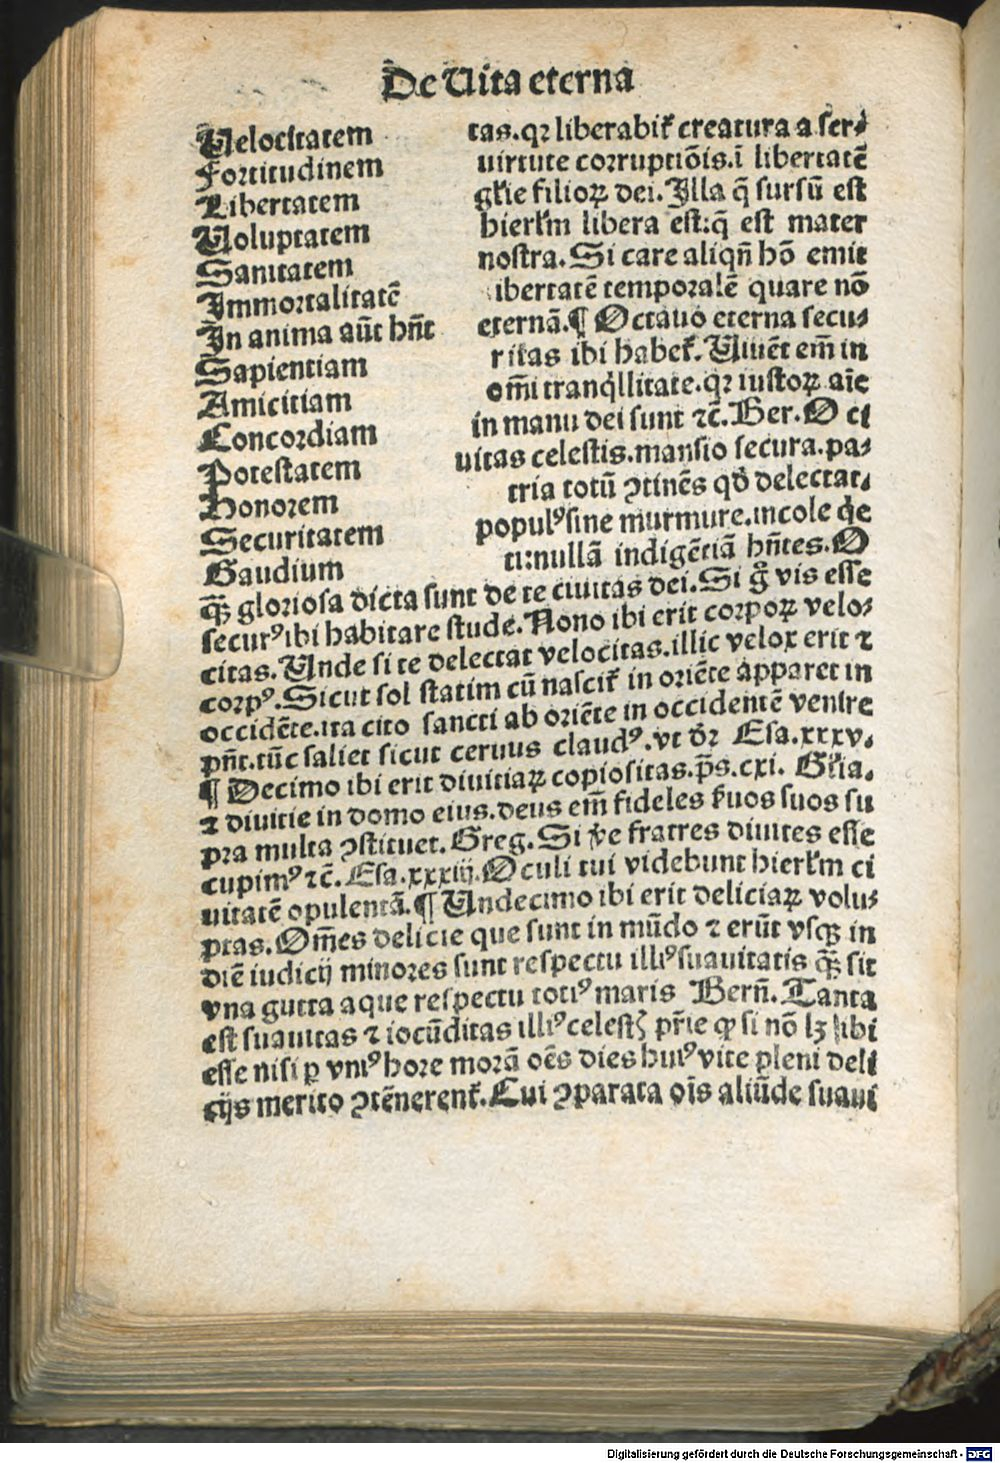 De Uita eterna
Uelocitatem
Fortitudinem
Libertatem
Uoluptatem
Sanitatem
Immortalitatē
In anima aūt hn̄t
Sapientiam
Amicitiam
Concordiam
Potestatem
Honorem
Securitatem
Gaudium
tas.qꝛ liberabit᷑ creatura a ser⸗
uirtute corruptiōis.ī libertatē
gl̓ie filioꝝ dei. Illa q̄ sursū est
hierl̓m libera est:q̄ est mater
nostra. Si care aliqn̄ hō emit
ibertatē temporalē quare nō
eternā.¶ Octauo eterna secu⸗
ritas ibi habet᷑. Uiuēt em̄ in
om̄i tranq̇llitate.qꝛ iustoꝝ aīe
in manu dei sunt ⁊c̄. Ber. O ci
uitas celestis.mansio secura.pa⸗
tria totū ꝯtinēs qď delectat.
popul⁹ sine murmure.incole q̇e
ti:nullā indigētiā hn̄tes. O
qꝫ̄ gloriosa dicta sunt de te ciuitas dei. Si g̊ vis esse
secur⁹ ibi habitare stude. Nono ibi erit corpoꝝ velo⸗
citas. Unde si te delectat velocitas.illic velox erit ⁊
corp⁹. Sicut sol statim cū nascit᷑ in oriēte apparet in
occidēte.ita cito sancti ab oriēte in occidentē venire
pn̄t.tūc saliet sicut ceruus claud⁹.vt dꝛ̄ Esa.xxxv.
¶ Decimo ibi erit diuitiaꝝ copiositas.p̄s.cxi. Gl̓ia.
⁊ diuitie in domo eius.deus em̄ fideles ẜuos suos su
pra multa ꝯstituet. Greg. Si v̓e fratres diuites esse
cupim⁹ ⁊c̄. Esa.xxxiij. Oculi tui videbunt hierl̓m ci
uitatē opulentā.¶ Undecimo ibi erit deliciaꝝ volu⸗
ptas. Om̄es delicie que sunt in mūdo ⁊ erūt vsqꝫ in
diē iudicij minores sunt respectu illi⁹ suauitatis qꝫ̄ sit
vna gutta aque respectu toti⁹ maris Bern̄. Tanta
est suauitas ⁊ iocūditas illi⁹ celestꝭ pr̄ie ꝙ si nō lꝫ ibi
esse nisi ꝑ vni⁹ hore morā oēs dies hui⁹ vite pleni deli
cijs merito ꝯtēnerent᷑. Cui ꝯparata oīs aliūde suaui
Digitalisierung gefördert durch die Deutsche Forschungsgemeinschaft - DFG